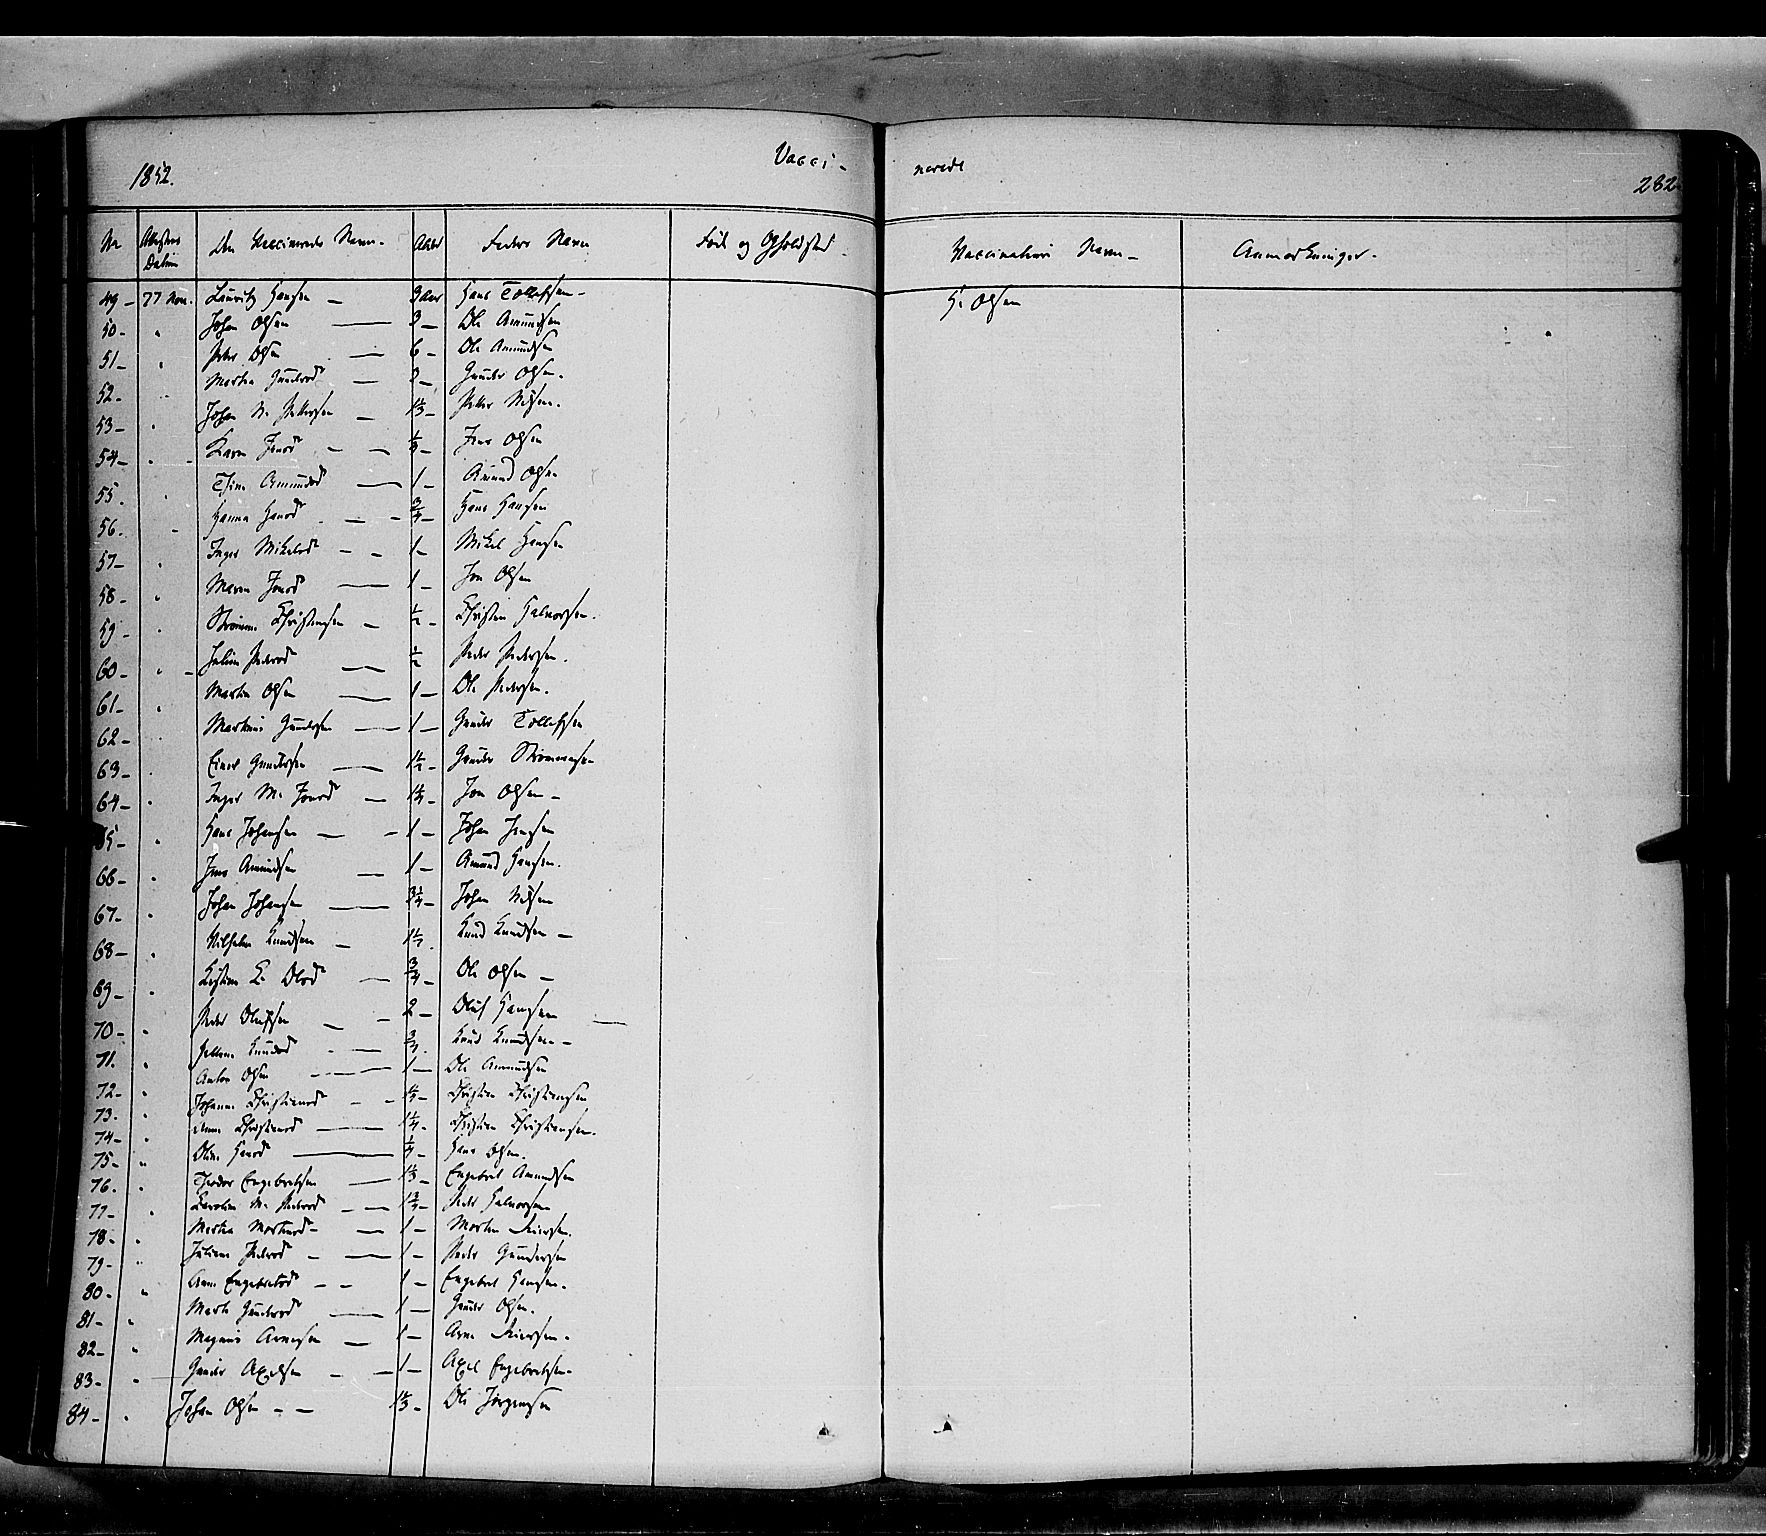 1852. Vacci- nerede 282.
No Attestens Datum Den Vaccineredes Navn. Alder Faders Navn Føde og Opholdsted Vaccinateurs Navn Anmærkninger.
49 - 27 Nov. Lauritz Hansen - 3 Aar Hans Tollefsen - Olsen
50 - " Johan Olsen 3 - Ole Amundsen
51 - " Peder Olsen 6 - Ole Amundsen
52 - " Marthe Gundersd 3 - Gunder Olsen.
53 - " Johan N. Pettersen 1 1/3 - Petter Nilsen.
54 - " Karen Jensd - Jens Olsen
55. " Amundsd 1 - Amund Olsen
56. " Hanna Hansd 3/4 - Hans Hansen
57 - " Inger Mikelsd 1 - Mikel Hansen
58 - " Maren Jonsd 1 - Jon Olsen
59 - " Christensen 1/2 - Christen Halvorsen.
60 - " Pedersd 1/2 Peder Pedersen.
61 - " Martin Olsen 1 - Ole Pedersen.
62 - " Martinus Gundersen 1 - Gunder Tollefsen
63 - " Einer Gundersen 1 1/2 - Gunder
64 - " Inger M. Jonsd 1 1/4 - Jon Olsen -
65 - " Hans Johansen 1 - Johan Jensen
66 - " Jens Amundsen 1 - Amund Hansen.
67 - " Johan Johansen 3 1/4 - Johan Nilsen
68 - " Vilhelm Knudsen Knud Knudsen -
69 - " Olsd 3/4 - Ole Olsen -
70 - " Peder Olufsen 2 - Oluf Hansen
71. " Knudsd 3/4. Knud Knudsen -
72 - " Anton Olsen 1 - Ole Amundsen
73. " Johanne Christiansd 1 1/4 - Christian Christiansen
74 - " Anne Christiansd 1 1/4. Christian Christiansen.
75 - " Oline Hansd 1/4 - Hans Olsen.
76. " Theodor Engebretsen 1 1/3 - Engebret Amundsen
77 - " Karoline M. Pedersd 1 3/4 - Peder Halvorsen
78 - " Marthe Mortensd - 1 - Morten
79 - " Juliane Pedersd 1 - Peder Gundersen
80 - " Anne Engebretsd 1 - Engebret Hansen.
81 - " Marthe Gundersd 1 - Gunder Olsen.
82 - " Magnus Arnesen 1 - Arne
83 - " Gunder Axelsen 1 - Axel Engebretsen.
84 - " Johan Olsen - - 1 1/3 - Ole Jørgensen